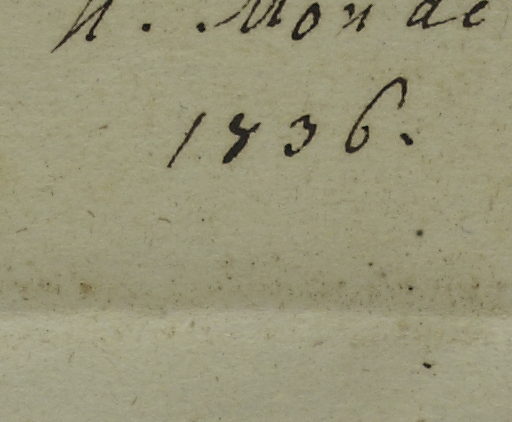 n. Mon de
1836.